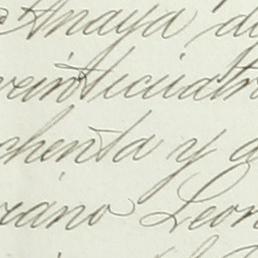 Anaya de
veinticuatro
chenta y
zano Leon